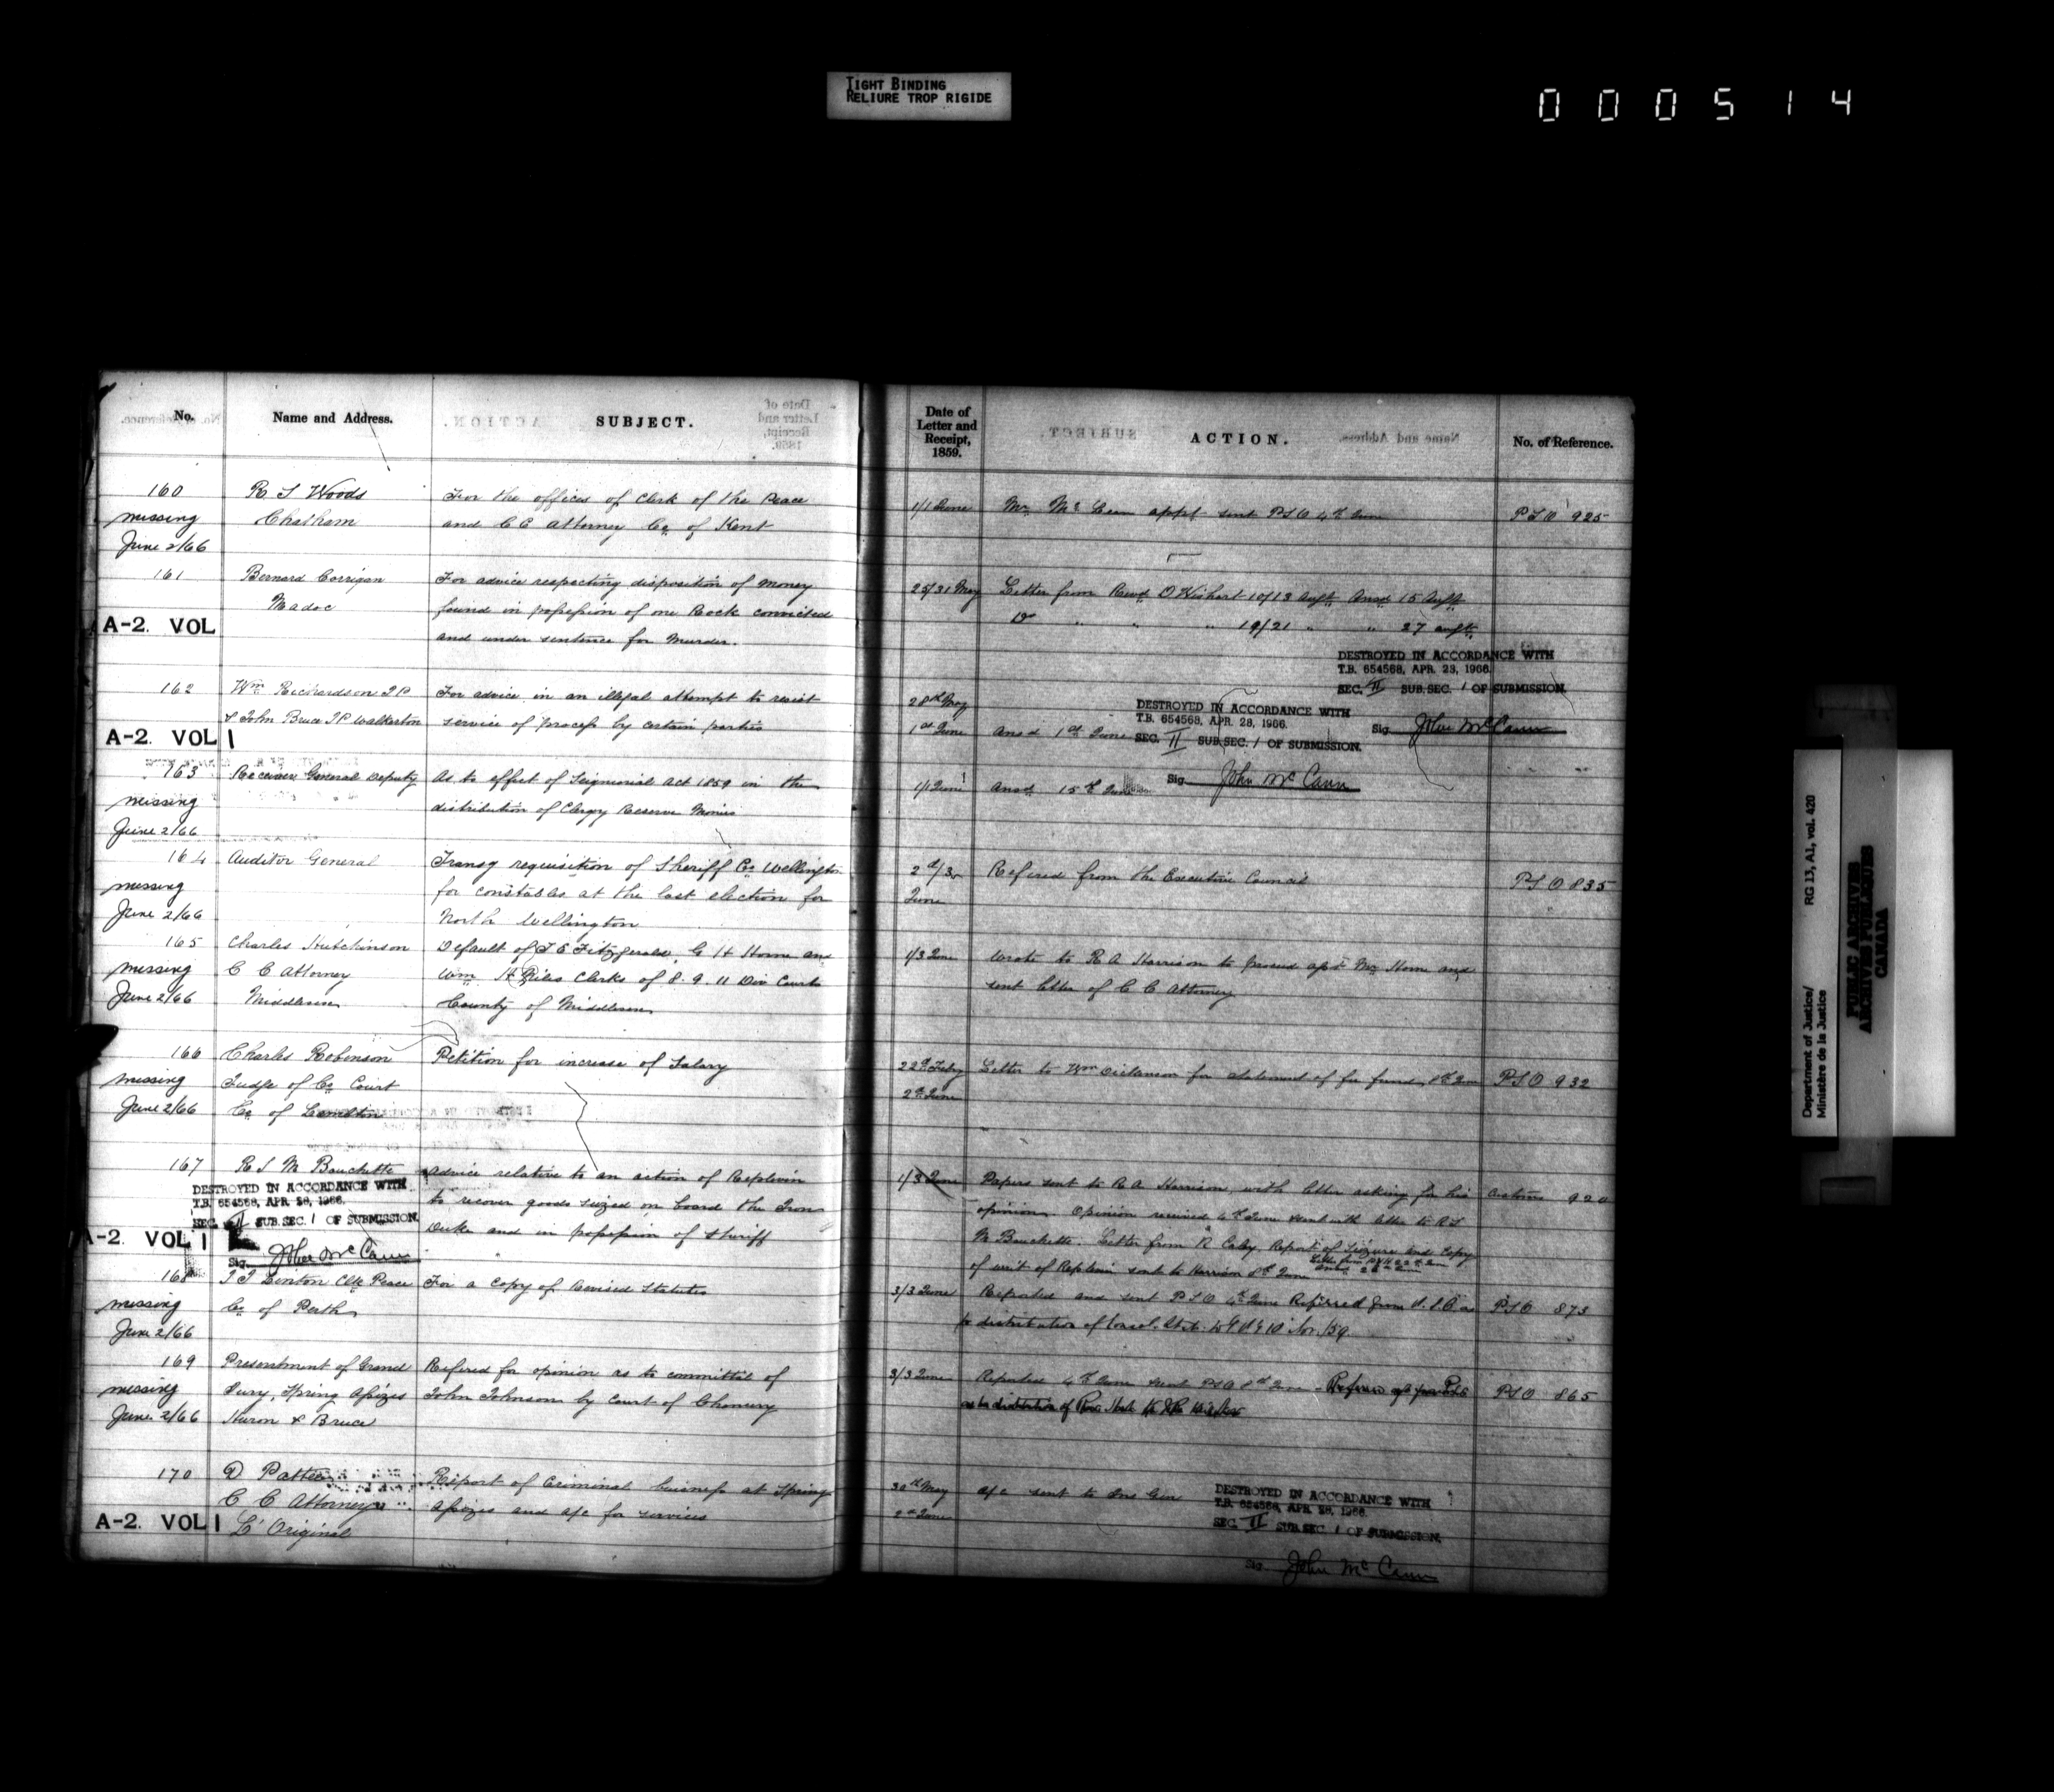 TIGHT BINDING
RELIURE TROP RIGIDE
000514
No.
Name and Address.
SUBJECT.
160
R S Woods
For the offices of Clerk of the Peace
missing
Chatham
and C C Attorney Co of Kent
June 2/66
161
Bernard Corrigan
For advice respecting disposition of money
Madoc
found in possession of one Rock convicted
A-2. VOL
and under sentence for murder.
162
Wm Richardson J P
For advice in an illegal attempt to resist
& John Bruce J P Walkerton
service of process by certain parties
A-2. VOL 1
163
Receiver General Deputy
As to effect of Seignorial Act 1859 in the
missing
distribution of Clergy Reserve Monies
June 2/66
164
Auditor General
Transg requisition of Sheriff Co Wellington
missing
for constables at the last election for
June 2/66
North Wellington
165
Charles Hutchinson
Default of J E Fitzgerald, G H Horne and
missing
C C Attorney
Wm H Niles Clerks of 8. 9. 11 Div Courts
June 2/66
Middlesex
County of Middlesex
166
Charles Robinson
Petition for increase of Salary
missing
Judge of Co Court
June 2/66
Co of Lambton
167
R S M Bouchette
Advice relative to an action of Replevin
DESTROYED IN ACCORDANCE WITH
T.B. 654568, APR. 28, 1966.
to recover goods seized on board the Iron
SEC. II SUB.SEC. 1 OF SUBMISSION.
Duke and in possession of Sheriff
A-2. VOL 1
Sig. John McCann
168
J J Linton Clk Peace
For a copy of Revised Statutes
missing
Co of Perth
June 2/66
169
Presentment of Grand
Refered for opinion as to committal of
missing
Jury, Spring Assizes
John Johnson by Court of Chancery
June 2/66
Huron & Bruce
170
D Pattee
Report of Criminal business at Spring
C C Attorney
Assizes and a/c for services
A-2. VOL 1
L'Original
Date of
Letter and
Receipt,
1859.
ACTION.
No. of Reference.
1/1 June
Mr McLean appt sent PSO 4th June
PSO 925
25/31 May
Letter from Revd 10/13 Augt Ansd 15 Augt
Do " " " 19/21 " " 27 Augt
DESTROYED IN ACCORDANCE WITH
T.B. 654568, APR. 28, 1966.
SEC. II SUB.SEC. 1 OF SUBMISSION.
Sig. John McCann
28th May
1st June
Ansd 1st June
DESTROYED IN ACCORDANCE WITH
T.B. 654568, APR. 28, 1966.
SEC. II SUB.SEC. 1 OF SUBMISSION.
Sig. John McCann
1/1 June
Ansd 15th June
2d/3d
June
Refered from the Executive Council
PSO 835
1/3 June
Wrote to R A Harrison to proceed agst Mr Horne and
sent letter of C C Attorney
22d Feby
2d June
Letter to Wm Dickinson for statement of fee fund, 8th June
PSO 932
1/3 June
Papers sent to R A Harrison, with letter asking for his
Customs 920
opinion. Opinion received 4th June sent with letter to R S
M Bouchette. Letter from R Caley Report of Seizure and copy
of writ of Replevin sent to Harrison 8th June
3/3 June
Reported and sent PSO 4th June Referred from
PSO 873
distribution of Consol. Stat. 10 Nov. /59
3/3 June
Reported 4th June sent PSO 8th June
PSO 865
30th May
2d June
a/c sent to Ins Gen
DESTROYED IN ACCORDANCE WITH
T.B. 654568, APR. 28, 1966.
SEC. II SUB.SEC. 1 OF SUBMISSION.
Sig. John McCann
Department of Justice/
Ministère de la Justice
RG 13, A1, vol. 420
PUBLIC ARCHIVES
ARCHIVES PUBLIQUES
CANADA